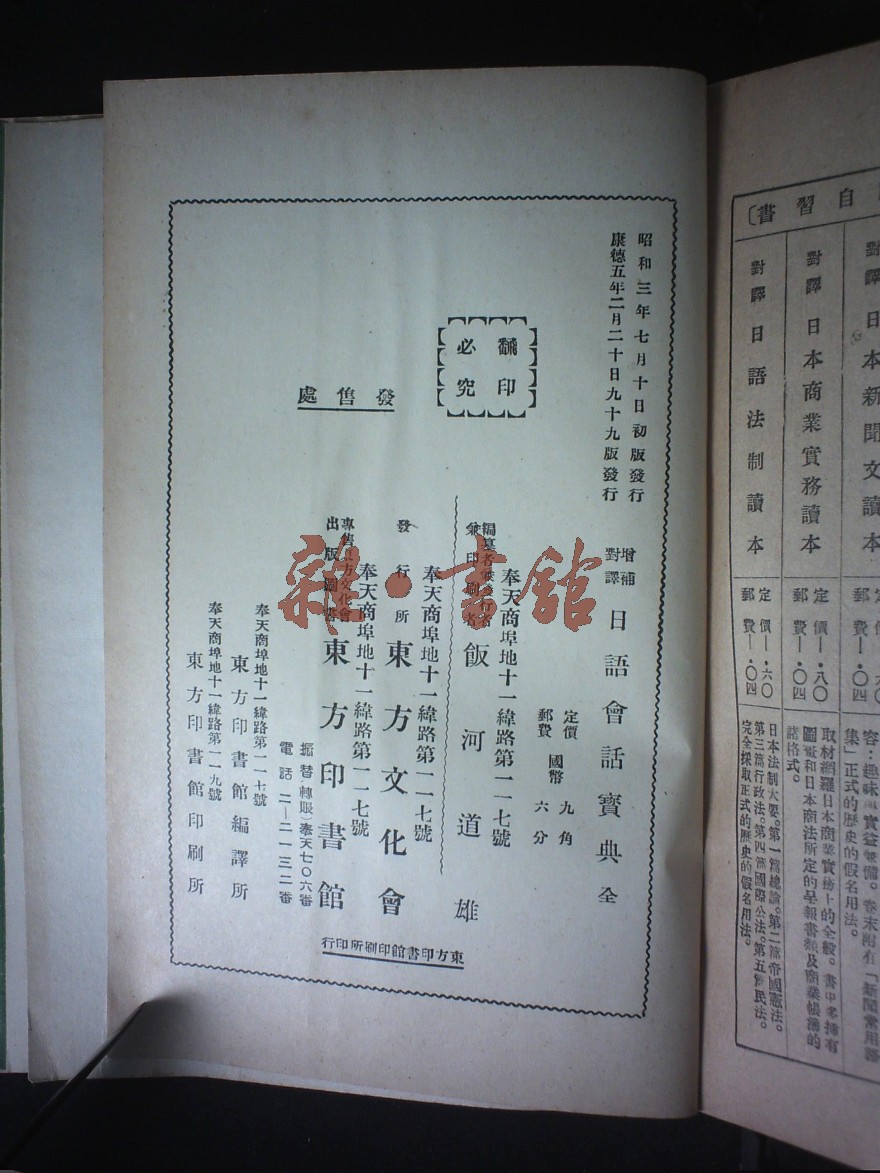 昭和三年七月十日初版發行
康德五年二月二十日九十九版發行
翻印
必究
增補
對譯
日語會話寶典
全
定價 國幣 九角
郵費 六分
奉天商埠地十一緯路第一一七號
飯河道雄
奉天商埠地十一緯路第一一七號
發行所 東方文化會
發售處
奉天商埠地十一緯路第一一七號
東方印書館
振替(轉賬)奉天七〇六番
電話 二—二一三二番
奉天商埠地十一緯路第一一七號
東方印書館編譯所
奉天商埠地十一緯路第一一九號
東方印書館印刷所
東方印書館印刷所印行
雜·書館
自習書〕
對譯 日本新聞文讀本
對譯 日本商業實務讀本
定價一·八〇
郵費一·〇四
取材網羅日本商業實務上的全般。書中多揷有
圖畫和日本商法所定的呈報書類及商業帳簿的
諸格式。
對譯 日語法制讀本
定價一·六〇
郵費一·〇四
日本法制大要。第一篇總論。第二篇帝國憲法。
第三篇行政法。第四篇國際公法。第五篇民法。
完全採取正式的歷史的假名用法。